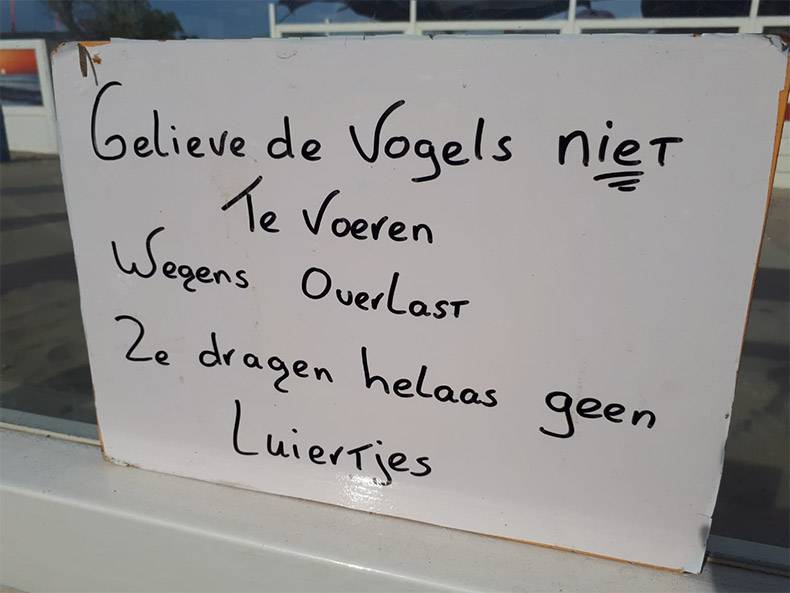 Gelieve de Vogels niet
Te Voeren
Wegens Overlast
Ze dragen helaas geen
Luiertjes